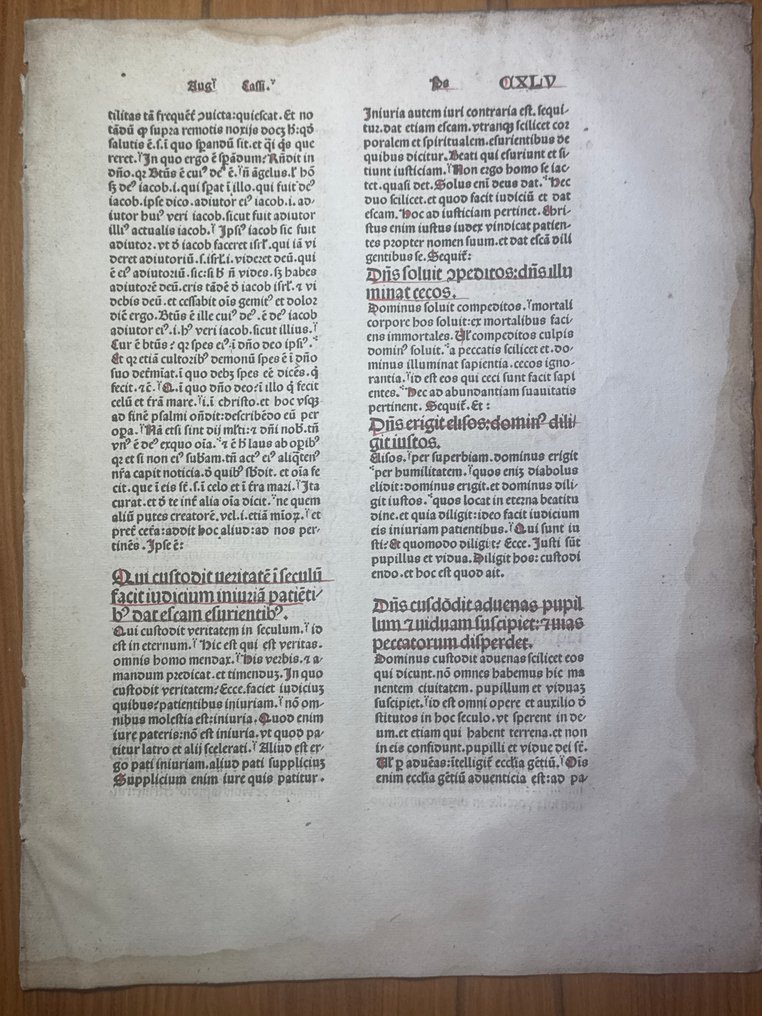 Augꝰ Cassi.ꝰ
Ps CXLV
tilitas tā frequēt̄ ꝯuicta:quiescat. Et no
tādū ꝙ supra remotis noxijs docꝫ h:qđ
salutis ē.s.ī quo spandū sit.et qi qs que
reret. In quo ergo ē spādum? Rn̄dit in
dn̄o.qꝛ Btūs ē cuiꝰ deꝰ ē. n̄ āgelus.ł hō
sꝫ deꝰ iacob.i.qui spat ī illo.qui fuit deꝰ
iacob.ipse dico.adiutor eiꝰ iacob.i.ad-
iutor huiꝰ veri iacob.sicut fuit adiutor
illiꝰ actualis iacob. Ipsiꝰ iacob sic fuit
adiutor.vt đ iacob faceret isrł.qui iā vi
deret adiutoriū.s.isrł.i.videret deū.qui
ē eiꝰ adiutoriū.sic:si h n̄ vides.sꝫ habes
adiutorē deū.eris tādē đ iacob isrł.⁊ vi
debis deū.et cessabit oīs gemitꝰ et dolor
diē ergo.Btūs ē ille cuiꝰ deꝰ.ē deꝰ iacob
adiutor eiꝰ.i.hꝰ veri iacob.sicut illius.
Cur ē btūs? qꝛ spes eiꝰ ī dn̄o deo ipsiꝰ.
Et qꝛ etiā cultoribꝰ demonū spes ē ī dn̄o
suo det̄miat.ī quo debꝫ spes eē dicēs.q̄
fecit.⁊c̄. Q.ī quo dn̄o deo?ī illo q̄ fecit
celū et t̄rā mare. i.ī christo.et hoc vsqꝫ
ad finē psalmi on̄dit:describēdo eū per
opa. Nā etsi sint dij młti:⁊ dn̄i nob.tn̄
vnꝰ ē deꝰ exquo oīa. ⁊ ē h laus ab opibꝰ
qꝛ et si non eiꝰ subam.tn̄ actꝰ eiꝰ aliqten̄
nr̄a capit noticia.đ quibꝰ sbdit. et oīa fe
cit.que ī eis st̄.s.ī celo et ī t̄ra mari. Ita
curat.et đ te inf̄ alia oīa dicit. ne quem
aliū putes creatorē.vel.i.etiā mīoꝝ. et
pret̄ cet̄a:addit hoc aliud:ad nos per-
tinēs.Ipse ē:
Qui custodit ueritatē ī seculū
facit iudicium iniuriā patiēti-
bꝰ dat escam esurientibꝰ.
Qui custodit veritatem in seculum. id
est in eternum. Hic est qui est veritas.
omnis homo mendax. His verbis.⁊ a-
mandum predicat.et timenduꝫ.In quo
custodit veritatem?Ecce.faciet iudiciuꝫ
quibus?patientibus iniuriam. nō om-
nibus molestia est:iniuria. Quod enim
iure pateris:nō est iniuria.vt quod pa-
titur latro et alij scelerati. Aliud est er-
go pati iniuriam.aliud pati suppliciuꝫ
Supplicium enim iure quis patitur.
Iniuria autem iuri contraria est.sequi-
tur.dat etiam escam.vtranqꝫ scilicet cor
poralem et spiritualem.esurientibus de
quibus dicitur.Beati qui esuriunt et si-
tiunt iusticiam. Non ergo homo se iac-
tet.quasi det.Solus enī deus dat. Hec
duo scilicet.et quod facit iudiciū et dat
escam. Hoc ad iusticiam pertinet.Chri-
stus enim iustus iudex vindicat patien-
tes propter nomen suum.et dat escā dili
gentibus se.Sequit̄:
Dn̄s soluit ꝯpeditos:dn̄s illu
minat cecos.
Dominus soluit compeditos. mortali
corpore hos soluit:ex mortalibus faci-
ens immortales. Uł compeditos culpis
dominꝰ soluit. a peccatis scilicet et.do-
minus illuminat sapientia.cecos igno-
rantia. id est eos qui ceci sunt facit sapi
entes. Hec ad abundantiam suauitatis
pertinent. Sequit̄.Et:
Dn̄s erigit elisos:dominꝰ dili-
git iustos.
Elisos. per superbiam.dominus erigit
per humilitatem. quos eniꝫ diabolus
elidit:dominus erigit.et dominus dili-
git iustos. quos locat in eterna beatitu
dine.et quia diligit:ideo facit iudicium
eis iniuriam patientibus. Qui sunt iu
sti?Et quomodo diligit? Ecce.Iusti sūt
pupillus et vidua.Diligit hos: custodi
endo.et hoc est quod ait.
Dn̄s cusdōdit aduenas pupil
lum ⁊ uiduam suscipiet:⁊ uias
peccatorum disperdet.
Dominus custodit aduenas scilicet eos
qui dicunt.nō omnes habemus hic ma
nentem ciuitatem. pupillum et viduaꝫ
suscipiet. id est omni opere et auxilio đ
stitutos in hoc seculo.vt sperent in de-
um.et etiam qui habent terrena.et non
in eis confidunt.pupilli et vidue dei st̄.
Uł ꝑ aduēas:ītelligit̄ ecclīa gētiū. Oīs
enim ecclīa gētiū aduenticia est:ad pa-